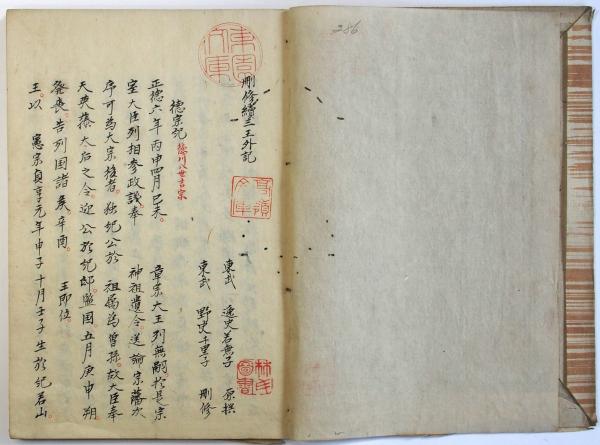 286
刪修續三王外記
東武 逸史若無子 原撰
東武 野史千里子 刪修
林氏圖書
德宗記 德川八世吉宗
正德六年丙申四月己未。 章宗大王列無嗣於是宗
室大臣列相參政議奉 神祖遺令送諭宗藩次
序可為大宗後者。獨紀公於 祖屬為曾孫。故大臣奉
天英藤太后之令迎公於紀邸監国五月庚申朔
發喪。告列国諸侯辛酉。 王即位。
王以 憲宗貞享元年申子十月壬子生於紀若山。